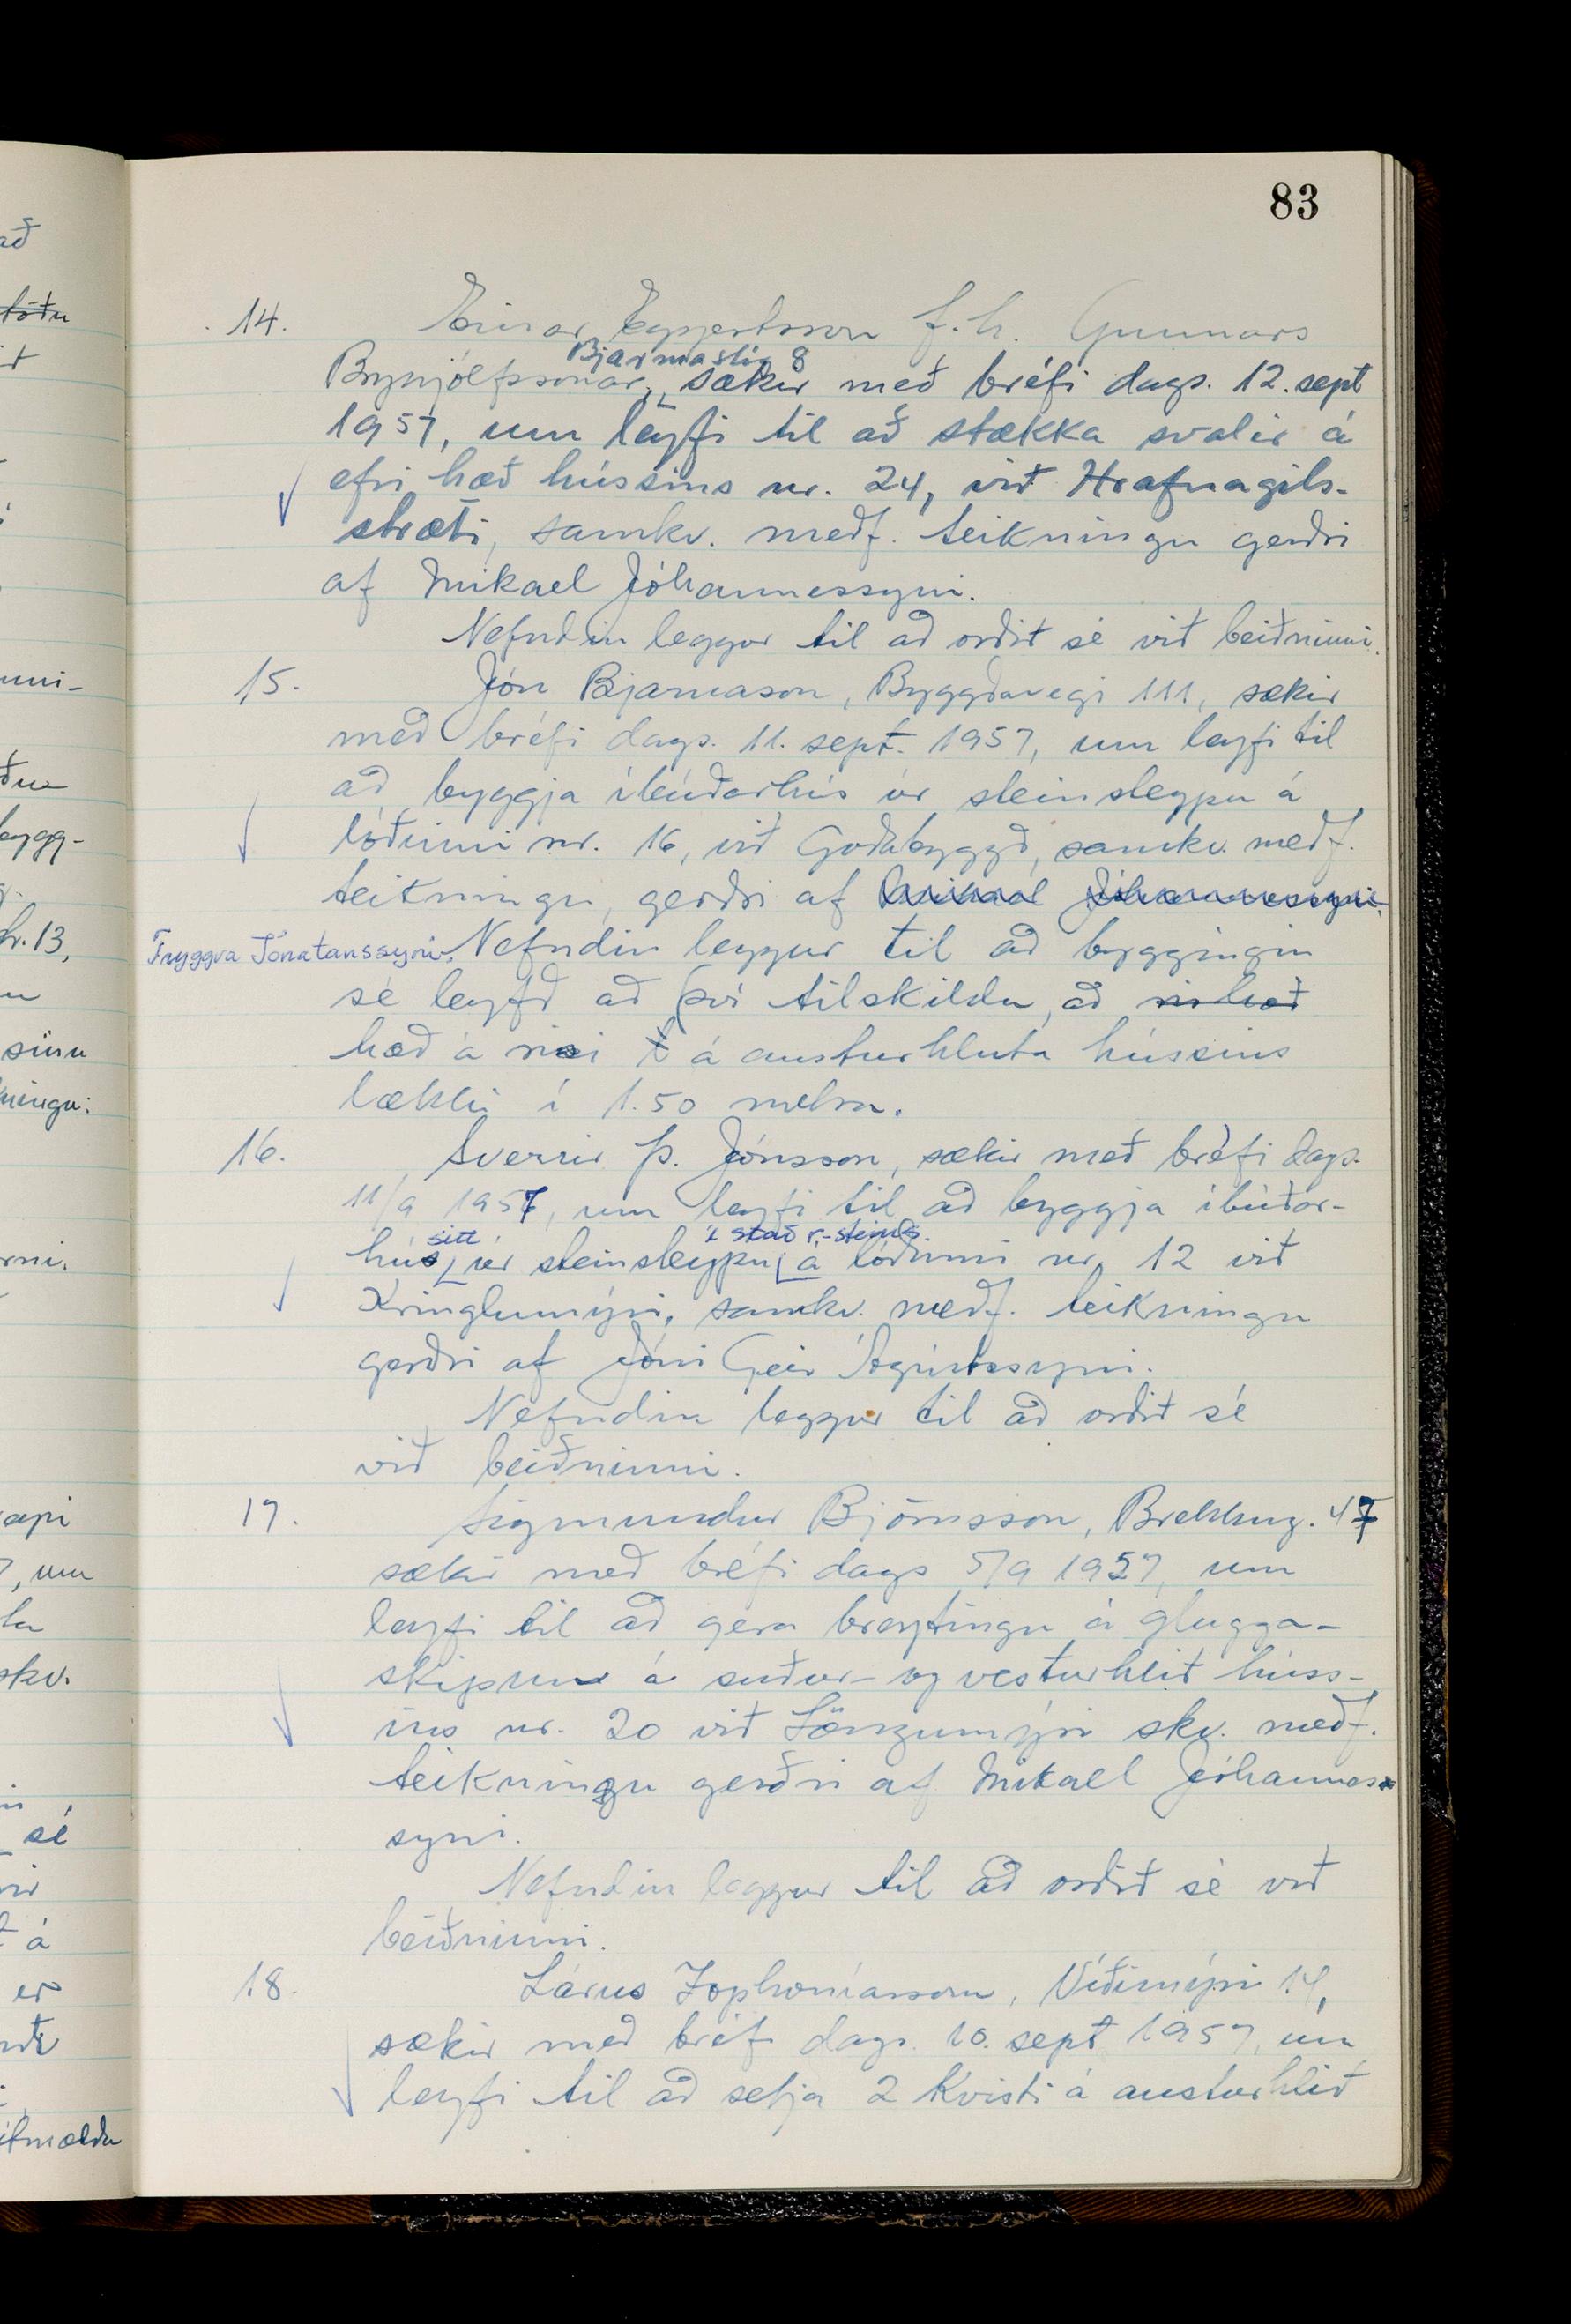 83
14. Einar Eggertsson f.h. Gunnars
Bjarmastíg 8
Brynjólfssonar, sækir með bréfi dags. 12. sept
1957, um leyfi til að stækka svalir á
efri hæð hússins nr. 24, við Hrafnagils-
stræti, samkv. meðf. teikningu gerðri
af Mikael Jóhannessyni.
Nefndin leggur til að orðið sé við beiðninni.
15. Jón Bjarnason, Byggðavegi 111, sækir
með bréfi dags. 11. sept. 1957, um leyfi til
að byggja íbúðarhús úr steinsteypu á
lóðinni nr. 16, við Goðabyggð, samkv. meðf.
teikningu, gerðri af Mikael Jóhannessyni.
Tryggva Jónatanssyni. Nefndin leggur til að byggingin
sé leyfð að því tilskildu, að
hæð á risi á austurhluta hússins
lækki í 1.50 metra.
16. Sverrir Þ. Jónsson, sækir með bréfi dags.
11/9 1957, um leyfi til að byggja íbúðar-
sitt í stað r.-steins
hús úr steinsteypu á lóðinni nr. 12 við
Kringlumýri, samkv. meðf. teikningu
gerðri af Jóni Geir Ágústssyni.
Nefndin leggur til að orðið sé
við beiðninni.
17. Sigmundur Björnsson, Brekkug. 47
sækir með bréfi dags 5/9 1957, um
leyfi til að gera breytingu á glugga-
skipun á suður- og vesturhlið húss-
ins nr. 20 við Löngumýri skv. meðf.
teikningu gerðri af Mikael Jóhannes-
syni.
Nefndin leggur til að orðið sé við
beiðninni.
18. Lárus Zophoníasson, Víðimýri 14,
sækir með bréf dags. 10. sept 1957, um
leyfi til að setja 2 kvisti á austurhlið